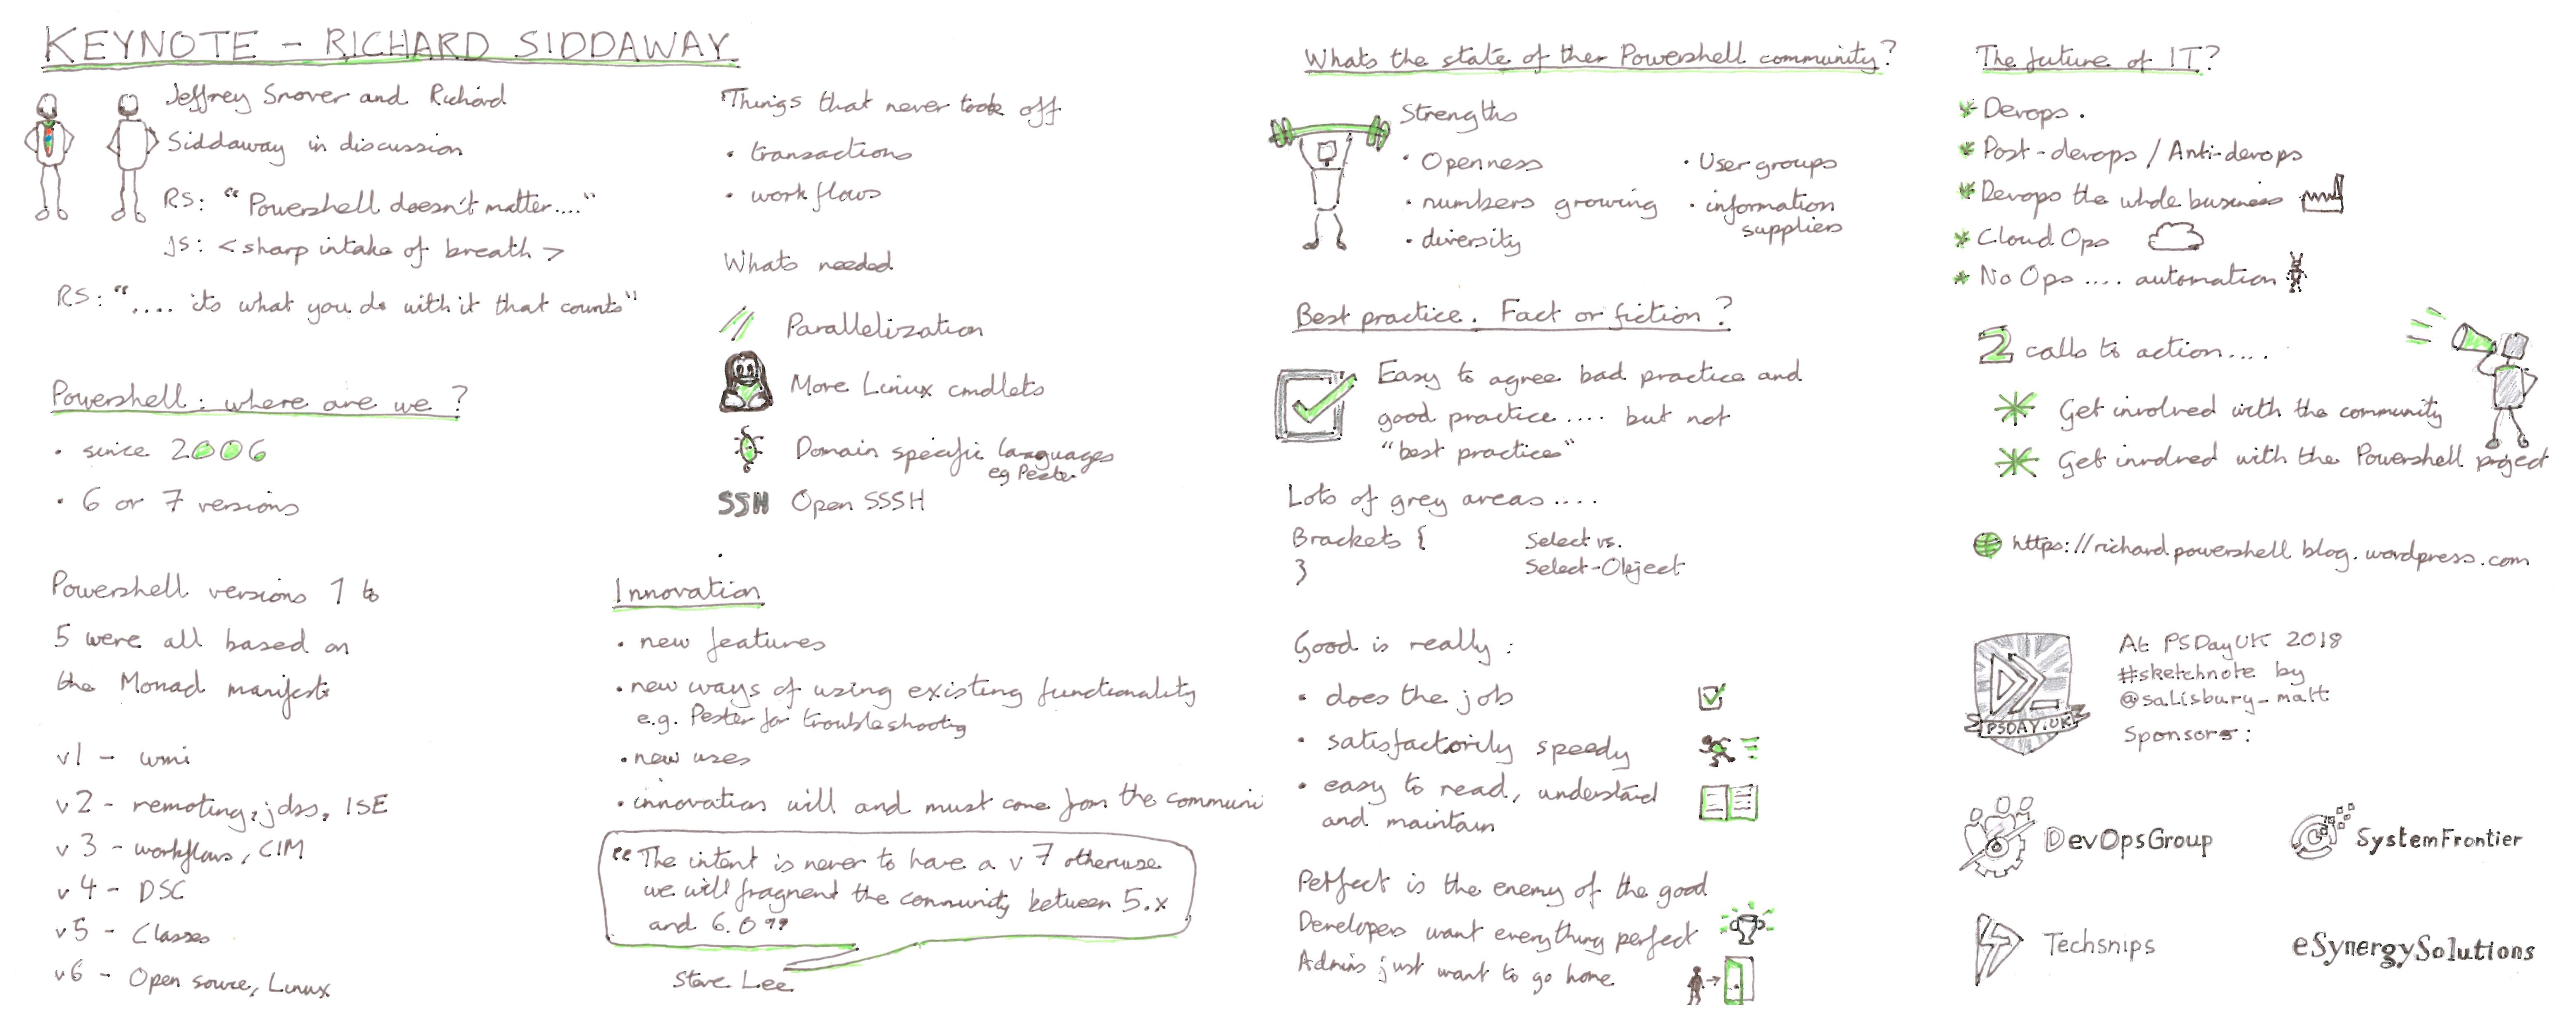 KEYNOTE - RICHARD SIDDAWAY
Jeffrey Snover and Richard
Siddaway in discussion
RS: "Powershell doesn't matter...."
JS: <sharp intake of breath>
RS: ".... its what you do with it that counts"
Powershell: where are we?
• since 2006
• 6 or 7 versions
Powershell versions 1 to
5 were all based on
the Monad manifesto
v1 - wmi
v2 - remoting, jobs, ISE
v3 - workflows, CIM
v4 - DSC
v5 - Classes
v6 - Open source, Linux
Things that never took off
• transactions
• workflows
Whats needed
Parallelization
More Linux cmdlets
Domain specific languages
eg Pester
SSH Open SSSH
Innovation
• new features
• new ways of using existing functionality
e.g. Pester for troubleshooting
• new uses
• innovation will and must come from the communi
"The intent is never to have a v7 otherwise
we will fragment the community between 5.x
and 6.0"
Steve Lee
Whats the state of ther Powershell community?
Strengths
• Openness
• numbers growing
• diversity
• User groups
• information
suppliers
Best practice. Fact or fiction?
Easy to agree bad practice and
good practice.... but not
"best practice"
Lots of grey areas....
Brackets {
}
Select vs.
Select-Object
Good is really:
• does the job
• satisfactorily speedy
• easy to read, understand
and maintain
Perfect is the enemy of the good
Developers want everything perfect
Admins just want to go home
The future of IT?
* Devops.
* Post-devops / Anti-devops
* Devops the whole business
* Cloud Ops
* No Ops .... automation
2 calls to action....
* Get involved with the community
* Get involved with the Powershell project
https://richardpowershellblog.wordpress.com
PSDAY.UK
At PSDayUK 2018
#sketchnote by
@salisbury_matt
Sponsors:
DevOpsGroup
SystemFrontier
Techsnips
eSynergySolutions